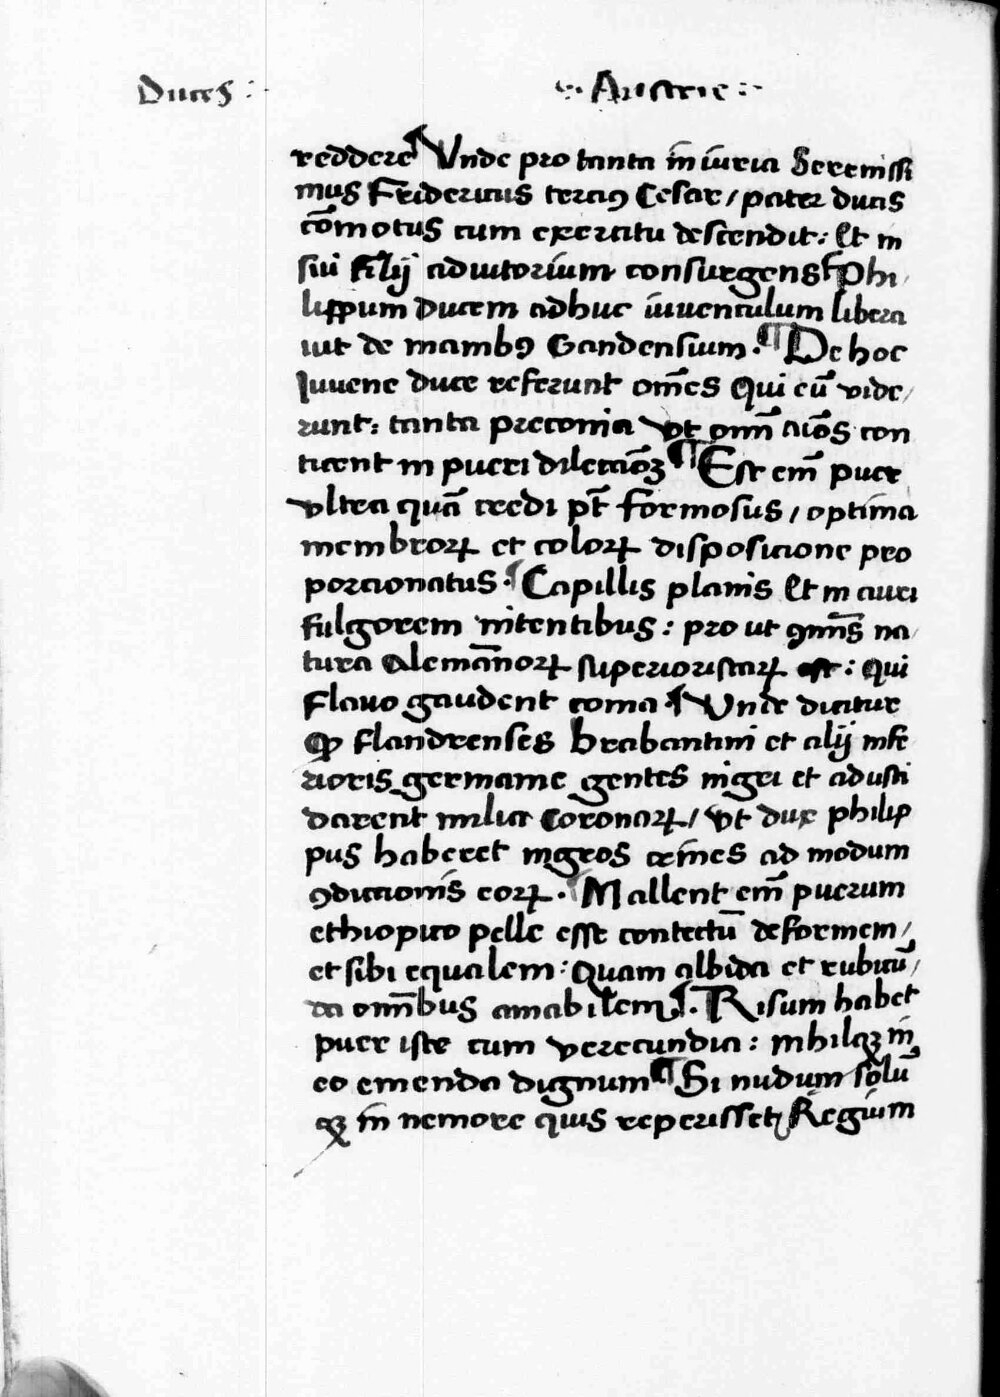 Duces :
·:· Austrie :·
reddere ¶ Vnde pro tanta iniuria Serenissi
mus Fridericus tercius Cesar / pater ducis
com̄otus cum exercitu descendit : Et in
sui filij adiutorium consurgens ¶ Phi
lippum Ducem adhuc iuuenculum libera
uit de manibꝰ Gandensium . ¶ De hoc
Iuuene duce referunt om̄es Qui eū vide /
runt : tanta preconia vt om̄ aīos con
citent in pueri dilectiōꝫ ¶ Est em̄ puer
vltra quā credi pt̄ formosus / optima
membroꝝ et coloꝝ disposicione pro
porcionatus . ¶ Capillis planis Et in auri
fulgorem nitentibus : pro ut ꝯmīs na /
tura Alemānoꝝ superioristaꝝ est : Qui
flauo gaudent coma ¶ Vnde dicitur
Qp flandrenses Brabantini et alij infe
rioris germanie gentes nigri et adusti
darent milia Coronaꝝ / Vt dux philip
pus haberet nigros crines ad modum
ꝯdicionis eoꝝ . ¶ Mallent em̄ puerum
ethiopico pelle esse contectū deformem /
et sibi equalem : Quam albida et rubicū /
da om̄ibus amabilem ¶ . Risum habet
puer iste cum verecundia : nihilqꝫ in
eo emenda dignum ¶ Si nudum solū
qꝫ in nemore quis reperisset / Regium